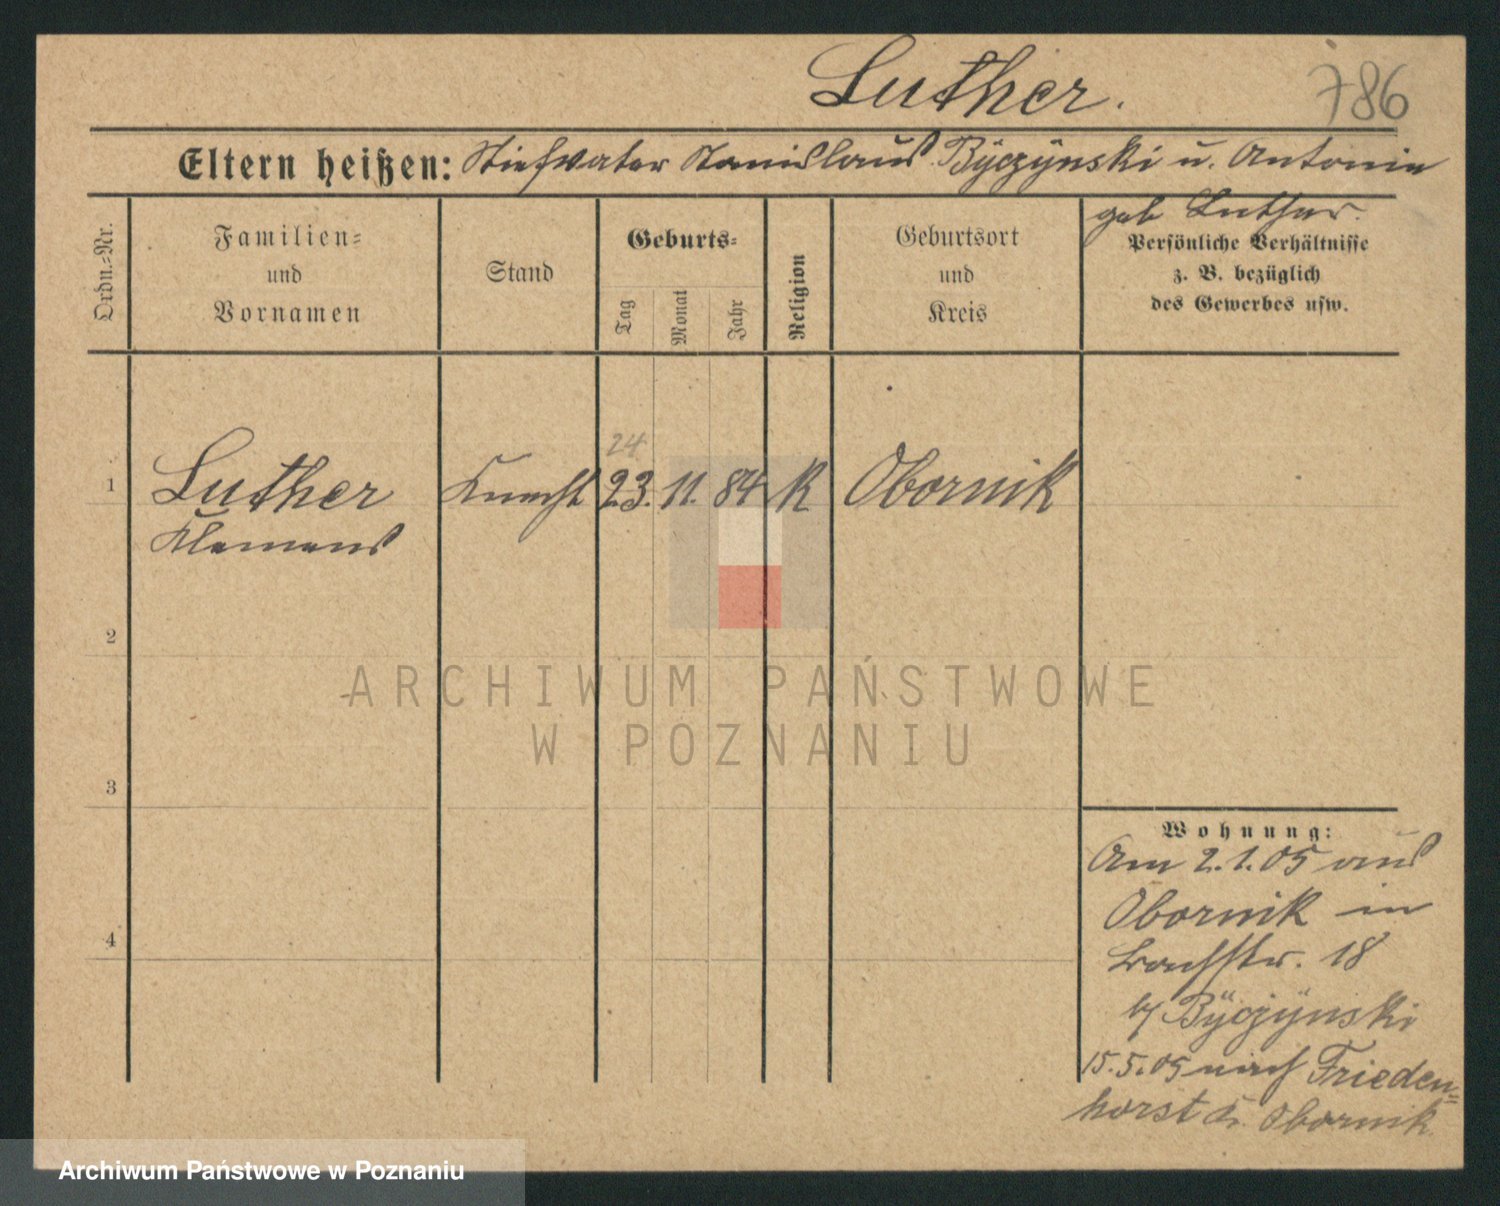 Luther.
786
Eltern heißen: Stiefvater Stanislaus Byczynski u. Antonie
geb Luther.
Ordn.-Nr.
Familien-
und
Vornamen
Stand
Geburts-
Tag
Monat
Jahr
Religion
Geburtsort
und
Kreis
Persönliche Verhältnisse
z. B. bezüglich
des Gewerbes usw.
24
1 Luther Knecht 23. 11. 84 K Obornik
Klemens
2
3
4
ARCHIWUM PAŃSTWOWE
W POZNANIU
Wohnung:
Am 2.1.05 aus
Obornik in
18
Byczynski
15.5.05 nach Frieden-
horst Kr. Obornik.
Archiwum Państwowe w Poznaniu